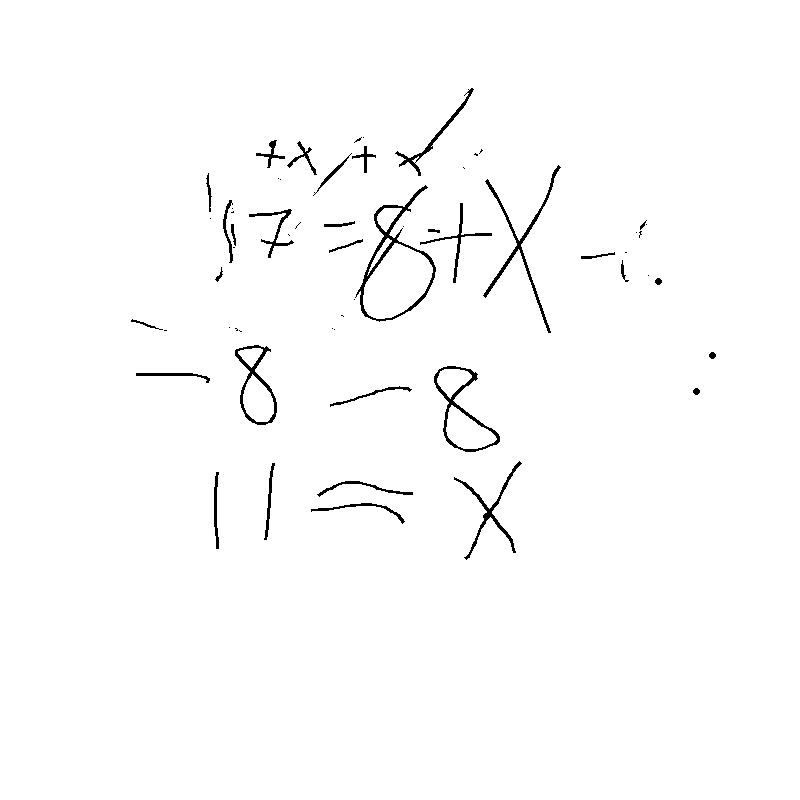 +x + x
17 = 8 + x
- 8 - 8
11 = x